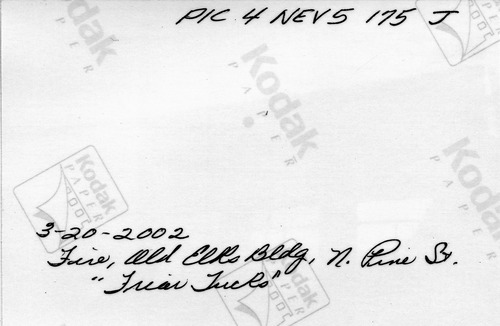 PIC 4 NEV 5 175 J
Kodak
PAPER
Kodak
PAPER
Kodak
PAPER
2002
Kodak
3-20-2002
Fire, Old Elks Bldg, N. Pine St.
"Friar Tucks"
Kodak
PAPER